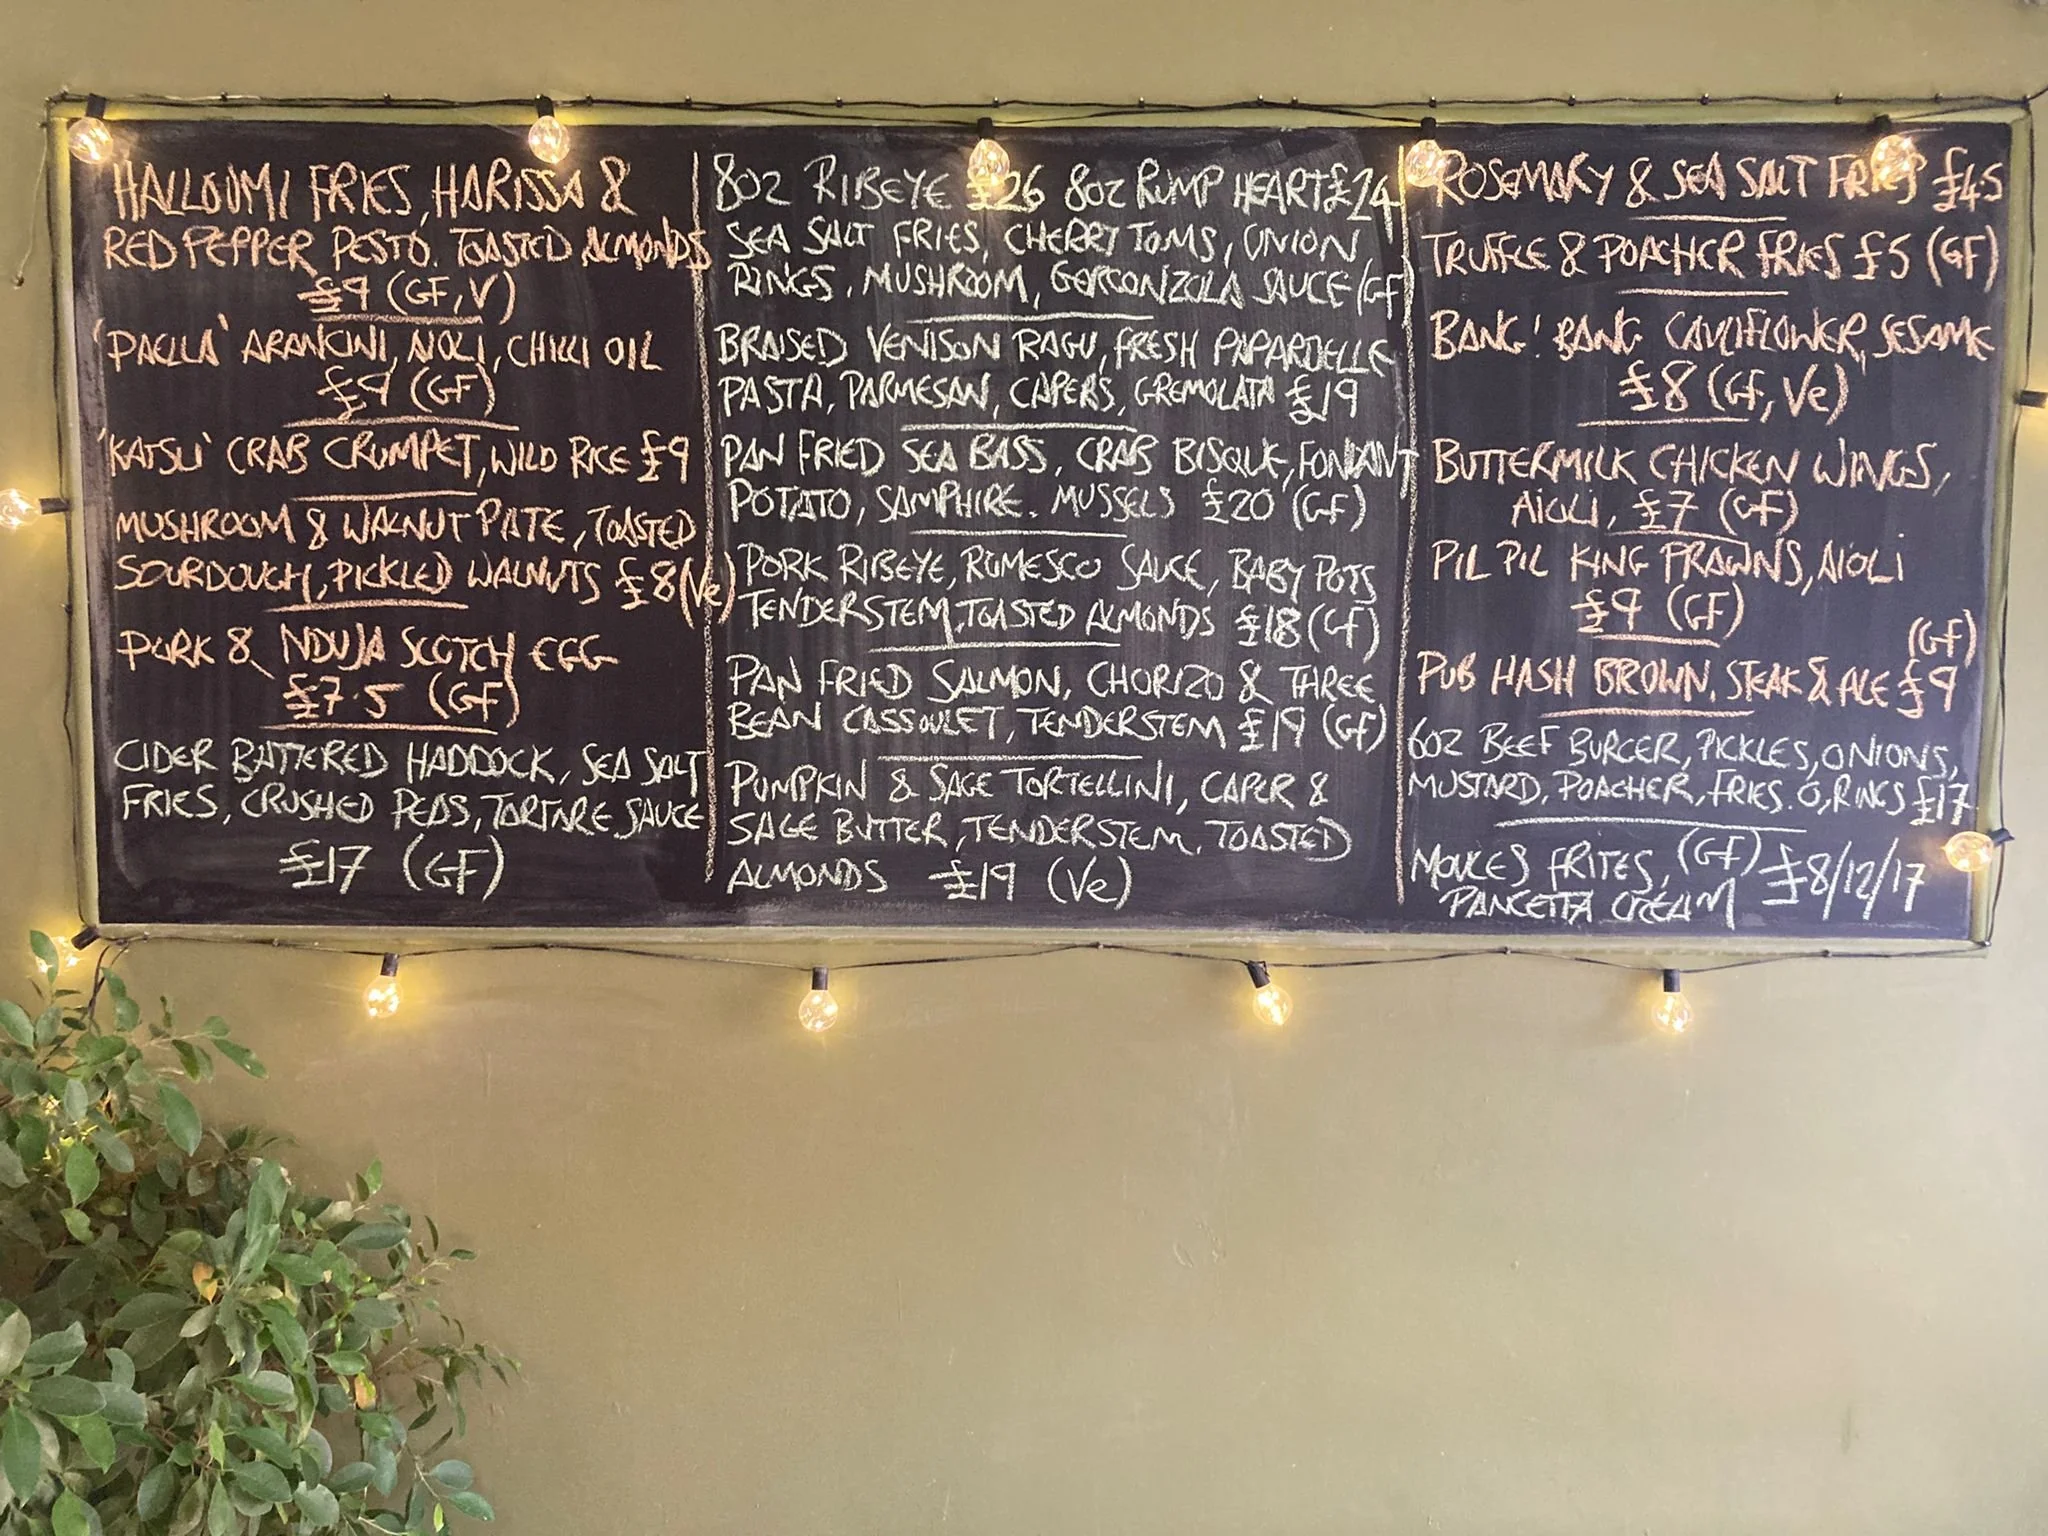 HALLOUMI FRIES, HARISSA &
RED PEPPER PESTO. TOASTED ALMONDS
£9 (GF, V)
'PAELLA' ARANCINI, AIOLI, CHILLI OIL
£9 (GF)
'KATSU' CRAB CRUMPET, WILD RICE £9
MUSHROOM & WALNUT PATE, TOASTED
SOURDOUGH, PICKLED WALNUTS £8 (Ve)
PORK & NDUJA SCOTCH EGG
£7.5 (GF)
CIDER BATTERED HADDOCK, SEA SALT
FRIES, CRUSHED PEAS, TARTARE SAUCE
£17 (GF)
8OZ RIBEYE £26 8OZ RUMP HEART £24
SEA SALT FRIES, CHERRY TOMS, ONION
RINGS, MUSHROOM, GORGONZOLA SAUCE (GF)
BRAISED VENISON RAGU, FRESH PAPARDELLE
PASTA, PARMESAN, CAPERS, GREMOLATA £19
PAN FRIED SEA BASS, CRAB BISQUE, FONDANT
POTATO, SAMPHIRE. MUSSELS £20 (GF)
PORK RIBEYE, ROMESCO SAUCE, BABY POTS
TENDERSTEM, TOASTED ALMONDS £18 (GF)
PAN FRIED SALMON, CHORIZO & THREE
BEAN CASSOULET, TENDERSTEM £19 (GF)
PUMPKIN & SAGE TORTELLINI, CAPER &
SAGE BUTTER, TENDERSTEM, TOASTED
ALMONDS £19 (Ve)
ROSEMARY & SEA SALT FRIES £4.5
TRUFFLE & POACHER FRIES £5 (GF)
BANG! BANG CAULIFLOWER, SESAME
£8 (GF, Ve)
BUTTERMILK CHICKEN WINGS,
AIOLI, £7 (GF)
PIL PIL KING PRAWNS, AIOLI
£9 (GF)
(GF)
PUB HASH BROWN, STEAK & ALE £9
6OZ BEEF BURGER, PICKLES, ONIONS,
MUSTARD, POACHER, FRIES. O, RINGS £17
MOULES FRITES, (GF) £8/12/17
PANCETTA CREAM